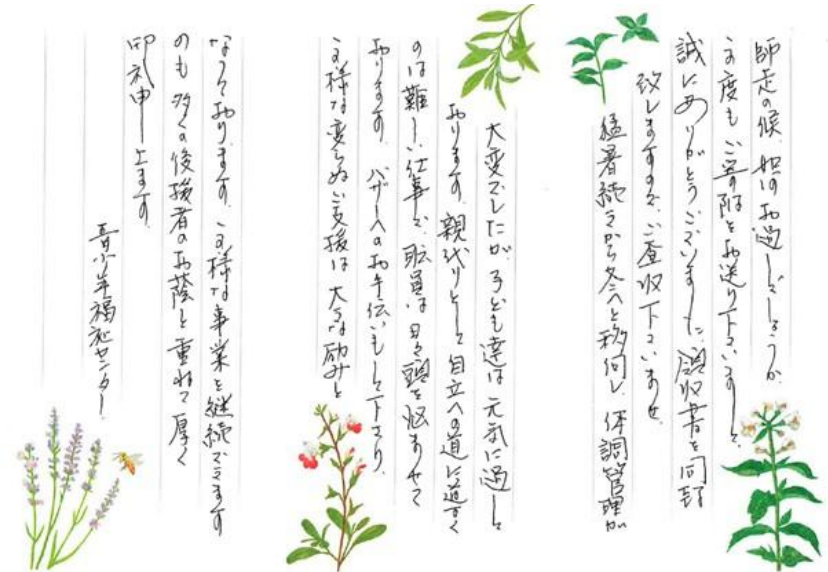 師走の候、如何お過しでしょうか。
この度も ご寄附をお送り下さいまして
誠にありがとうございました。領収書を同封
致しますので、ご査収下さいませ。
猛暑続きから冬へと移行し、体調管理が
大変でしたが、子ども達は元気に過して
おります。親代りとして 自立への道に導く
のは難しい仕事で、職員は日々頭を悩ませて
おります。バザーへのお手伝いもして下さり、
この様な変らぬご支援は 大きな励みと
なっております。この様な事業を継続できます
のも 多くの後援者のお蔭と重ねて厚く
御礼申し上ます。
青少年福祉センター